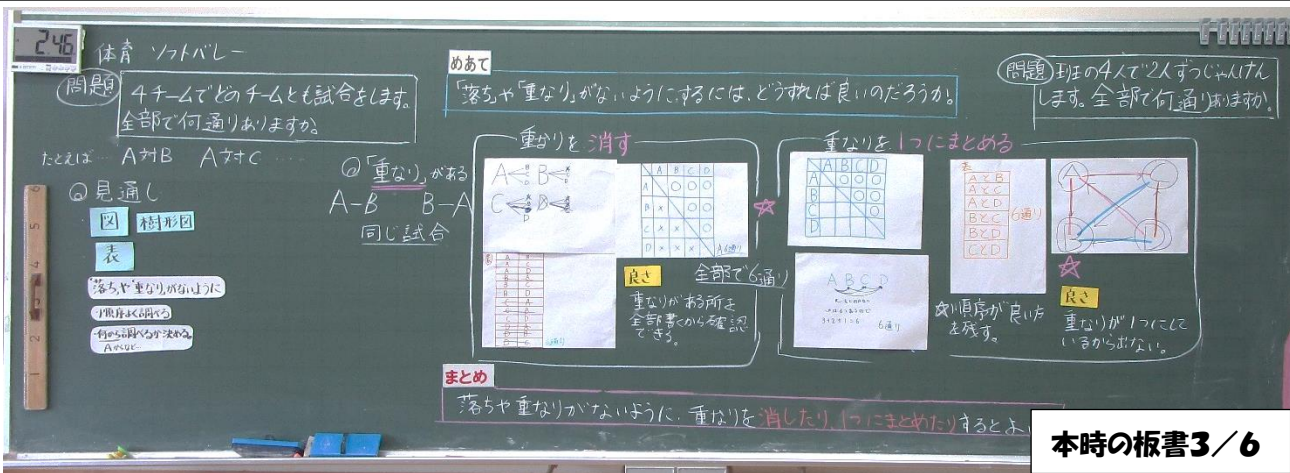 2:46
体育 ソフトバレー
問題
4チームでどのチームとも試合をします。
全部で何通りありますか。
たとえば… A対B A対C ‥‥
見通し
図
樹形図
表
「落ち」や「重なり」がないように
・順序よく調べる
・何から調べるか決める。
Aからなど…
「重なり」がある
A-B B-A
同じ試合
めあて
「落ち」や「重なり」がないように、するには、どうすれば良いのだろうか。
重なりを消す
A B C D
良さ
重なりがある所を
全部書くから確認
できる。
全部で6通り
重なりを1つにまとめる
A B C D
A
B
C
D
A B C D
6通り
表
AとB
AとC
AとD
BとC
BとD
CとD
6通り
☆順序が良い方
を残す。
良さ
重なりが1つにして
いるから
問題 班の4人で2人ずつじゃんけん
します。全部で何通りありますか。
まとめ
落ちや重なりがないように、重なりを消したり、1つにまとめたりするとよ
本時の板書3/6